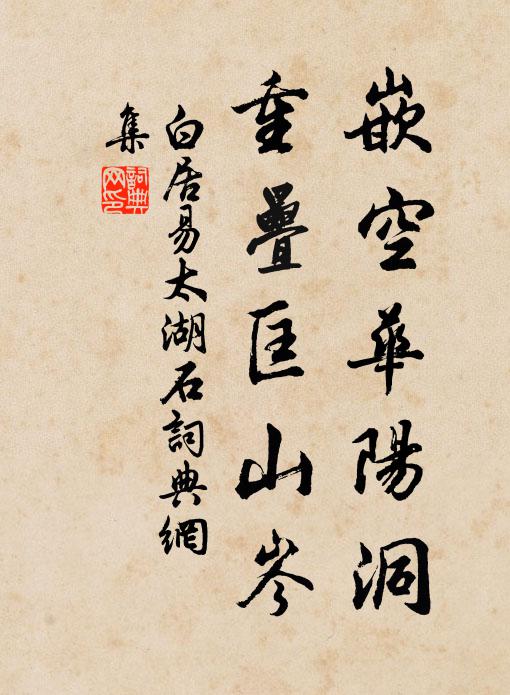 嵌空華陽洞
重疊匡山岑
白居易太湖石詞典網
集
詞典
网印